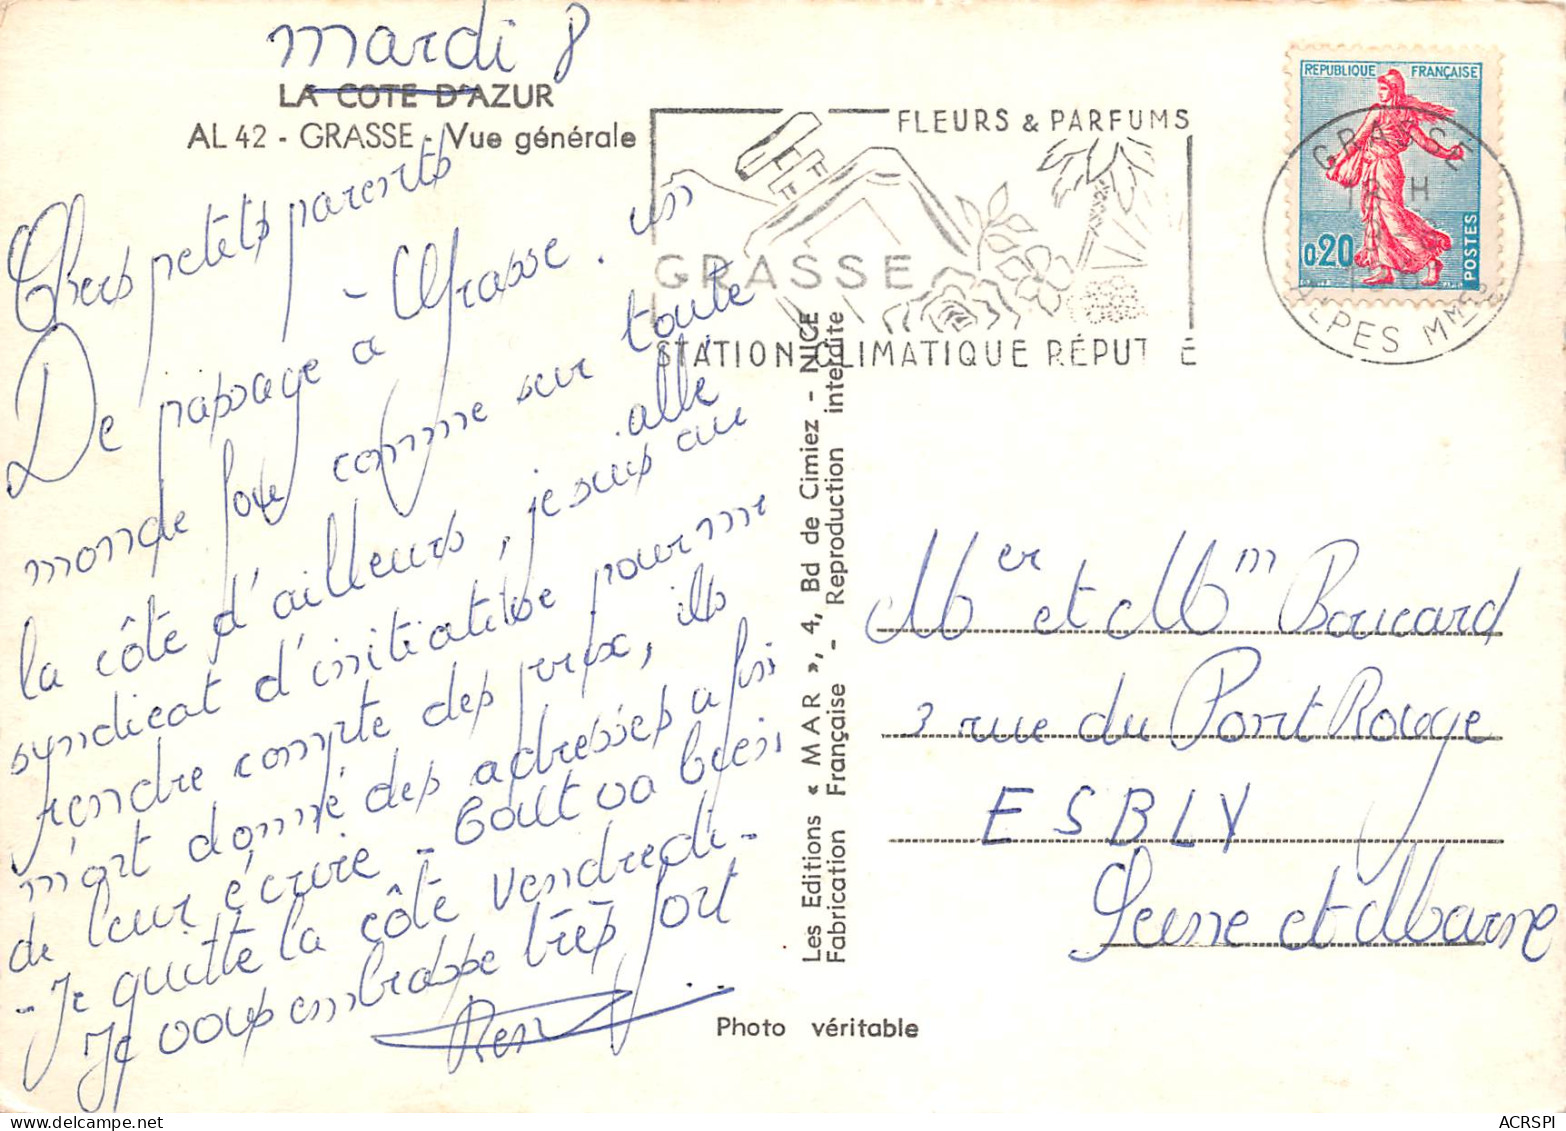 mardi 8
LA COTE D'AZUR
AL 42 - GRASSE - Vue générale
Chers petits parents
De passage à Grasse . un
monde fou comme sur toute
la côte d'ailleurs, je suis allé
au syndicat d'initiative pour me
rendre compte des prix, ils
m'ont donné des adresses afin
de leur écrire - tout va bien
- Je quitte la côte vendredi -
Je vous embrasse très fort
FLEURS & PARFUMS
GRASSE
STATION CLIMATIQUE RÉPUTÉE
REPUBLIQUE FRANÇAISE
0,20
POSTES
GRASSE
18 H
ALPES MMES
Les Editions « MAR », 4, Bd de Cimiez - NICE
Fabrication Française - Reproduction interdite
Mer et Mm Boucard
3 rue du Pont Rouge
ESBLY
Seine et Marne
Photo véritable
ACRSPI